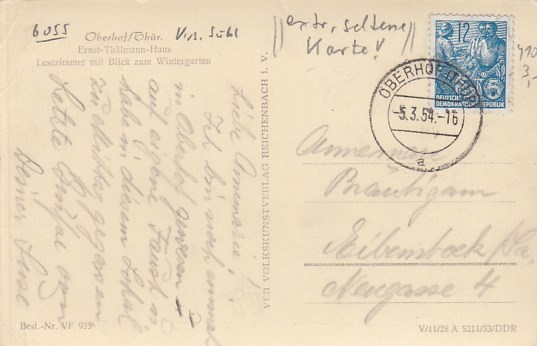 6055
Oberhof/Thür. Krs. Suhl
Ernst-Thälmann-Haus
Lesezimmer mit Blick zum Wintergarten
extr. seltene
Karte!
3,-
12
DEUTSCHE
DEMOKRATISCHE REPUBLIK
OBERHOF (THÜR)
-5.3.54.-16
a
Liebe Annemarie!
Ich bin noch einmal
in Oberhof gewesen u.
auf eigene Faust u.
habe in diesem Lokal
zu Mittag gegessen
Letzte Grüße von
Deiner
VEB VOLKSKUNSTVERLAG REICHENBACH I. V.
Annemarie
Bräutigam
Eibenstock
Neugasse 4
Best.-Nr. VF 935
V/11/28 A 5211/53/DDR